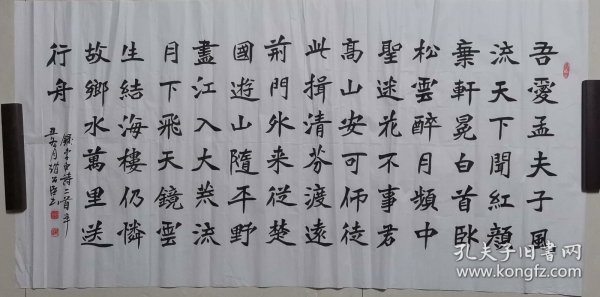 吾愛孟夫子風
流天下聞紅顏
棄軒冕白首臥
松雲醉月頻中
聖迷花不事君
高山安可仰徒
此揖清芬渡遠
荊門外来從楚
國遊山隨平野
盡江入大荒流
月下飛天鏡雲
生結海樓仍憐
故鄉水萬里送
行舟
錄李白詩二首辛
丑冬月
孔夫子旧书网
www.kongfz.com